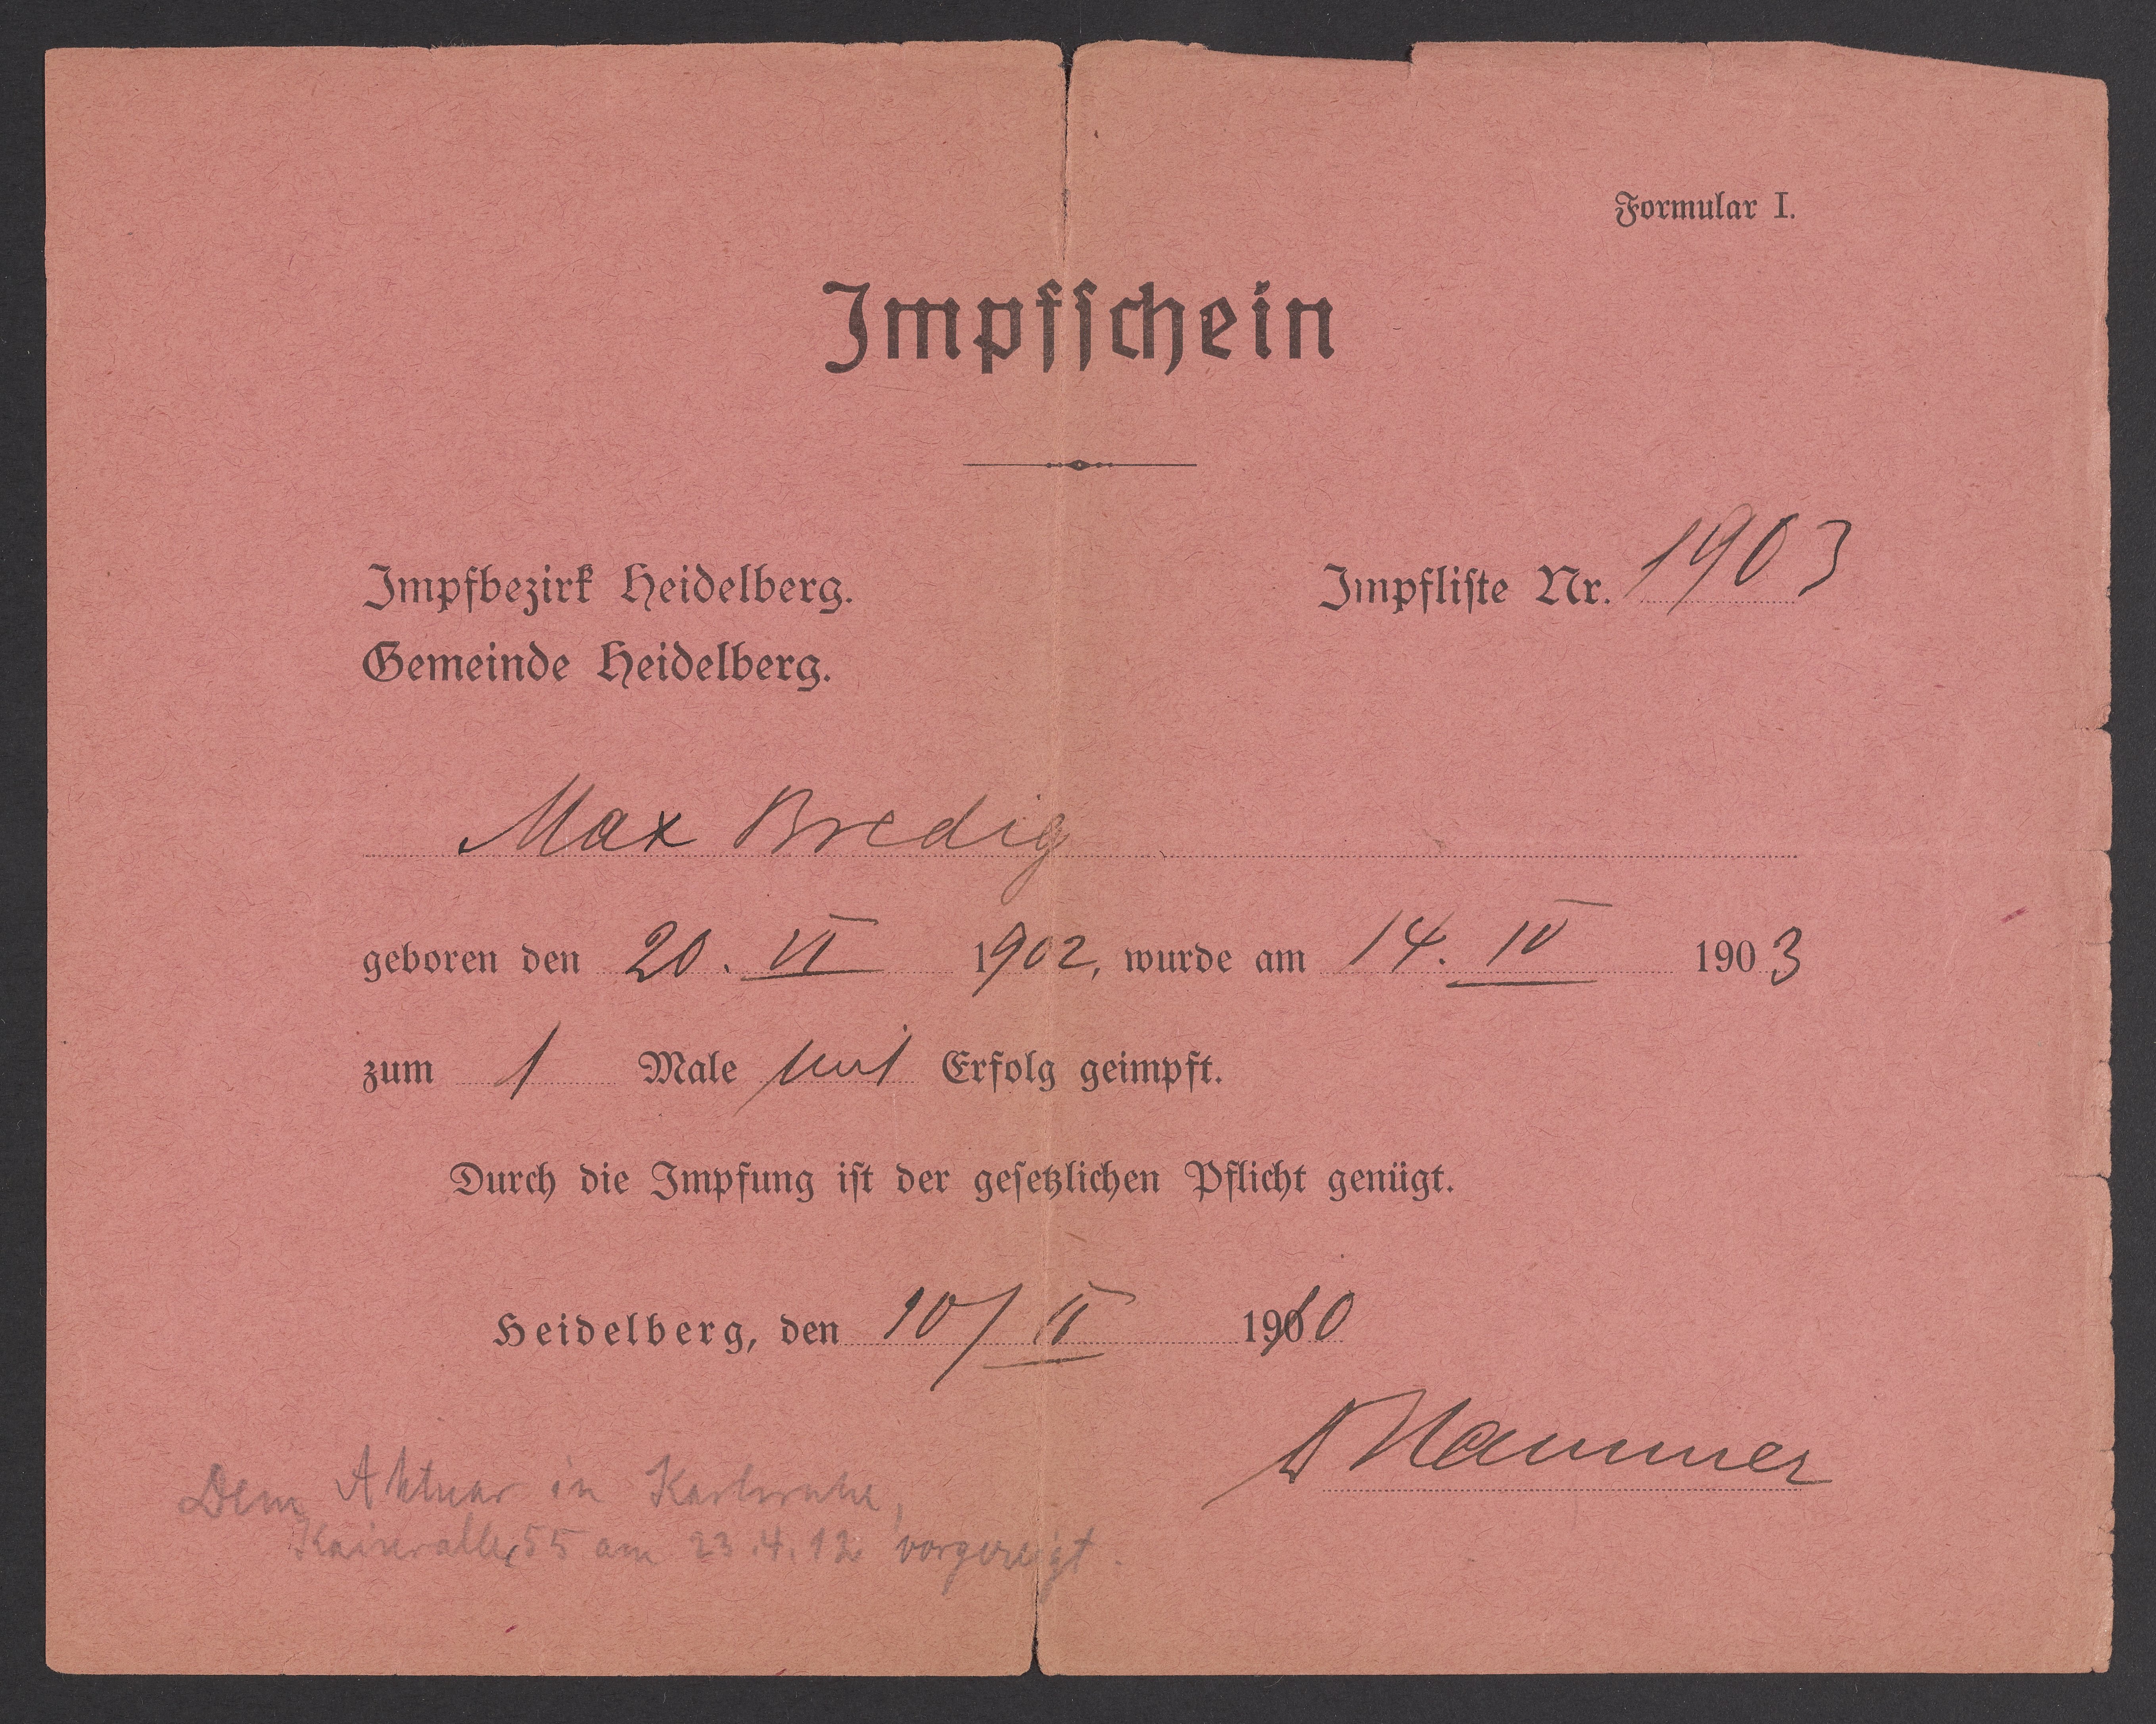 Formular I.
Impfschein
Impfbezirk Heidelberg.
Impfliste Nr. 1903
Gemeinde Heidelberg.
Max Bredig
geboren den 20. VI 1902, wurde am 14. IV 1903
zum 1 Male mit Erfolg geimpft.
Durch die Impfung ist der gesetzlichen Pflicht genügt.
Heidelberg, den 10/II 1910
Dr Hammer
Dem Aktuar in Karlsruhe,
Kaiserallee 55 am 23.4.12 vorgezeigt.